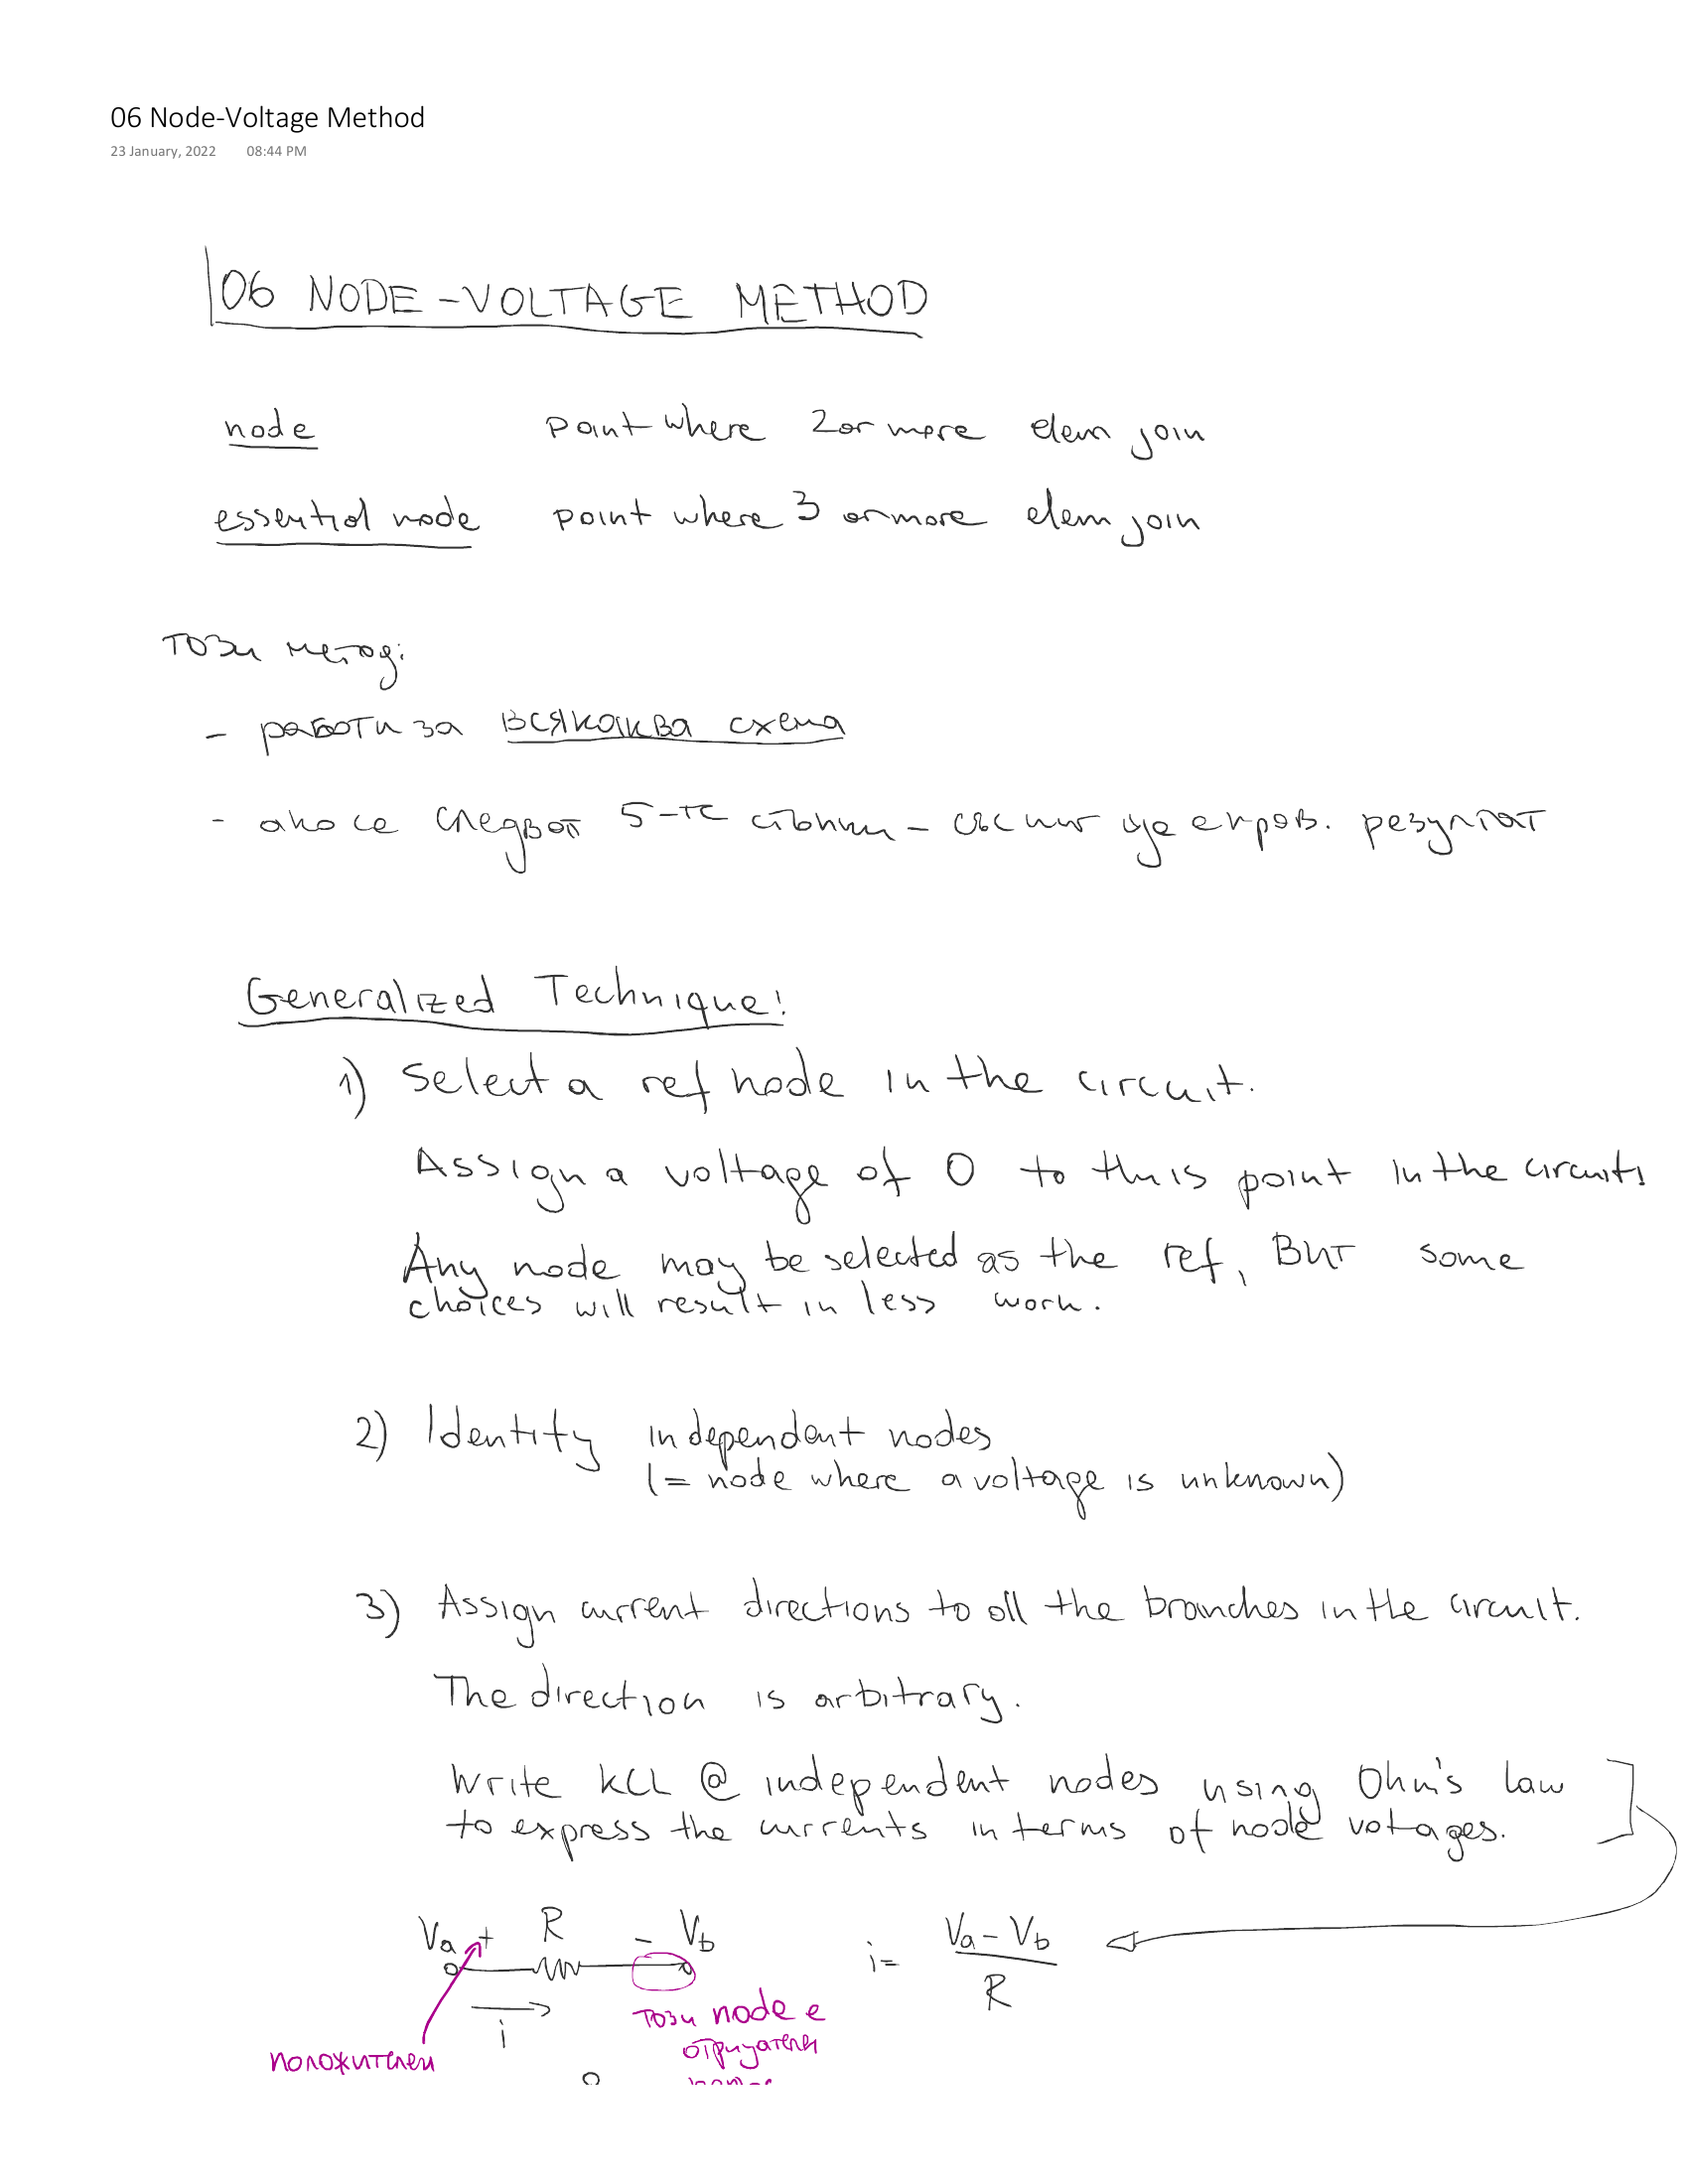 06 Node-Voltage Method
23 January, 2022 08:44 PM
06 NODE-VOLTAGE METHOD
node point where 2 or more elem join
essential node point where 3 or more elem join
този метод:
- работи за всякаква схема
- ако се следват 5-те стъпки - ще е прав. резултат
Generalized Technique!
1) Select a ref node in the circuit.
Assign a voltage of 0 to this point in the circuit!
Any node may be selected as the ref, BUT some
choices will result in less work.
2) Identity independent nodes
(= node where a voltage is unknown)
3) Assign current directions to all the branches in the circuit.
The direction is arbitrary.
Write KCL @ independent nodes using Ohm's law
to express the currents in terms of node votages.
Va + R - Vb i = Va - Vb
R
i
този node е
отрицателен
положителен